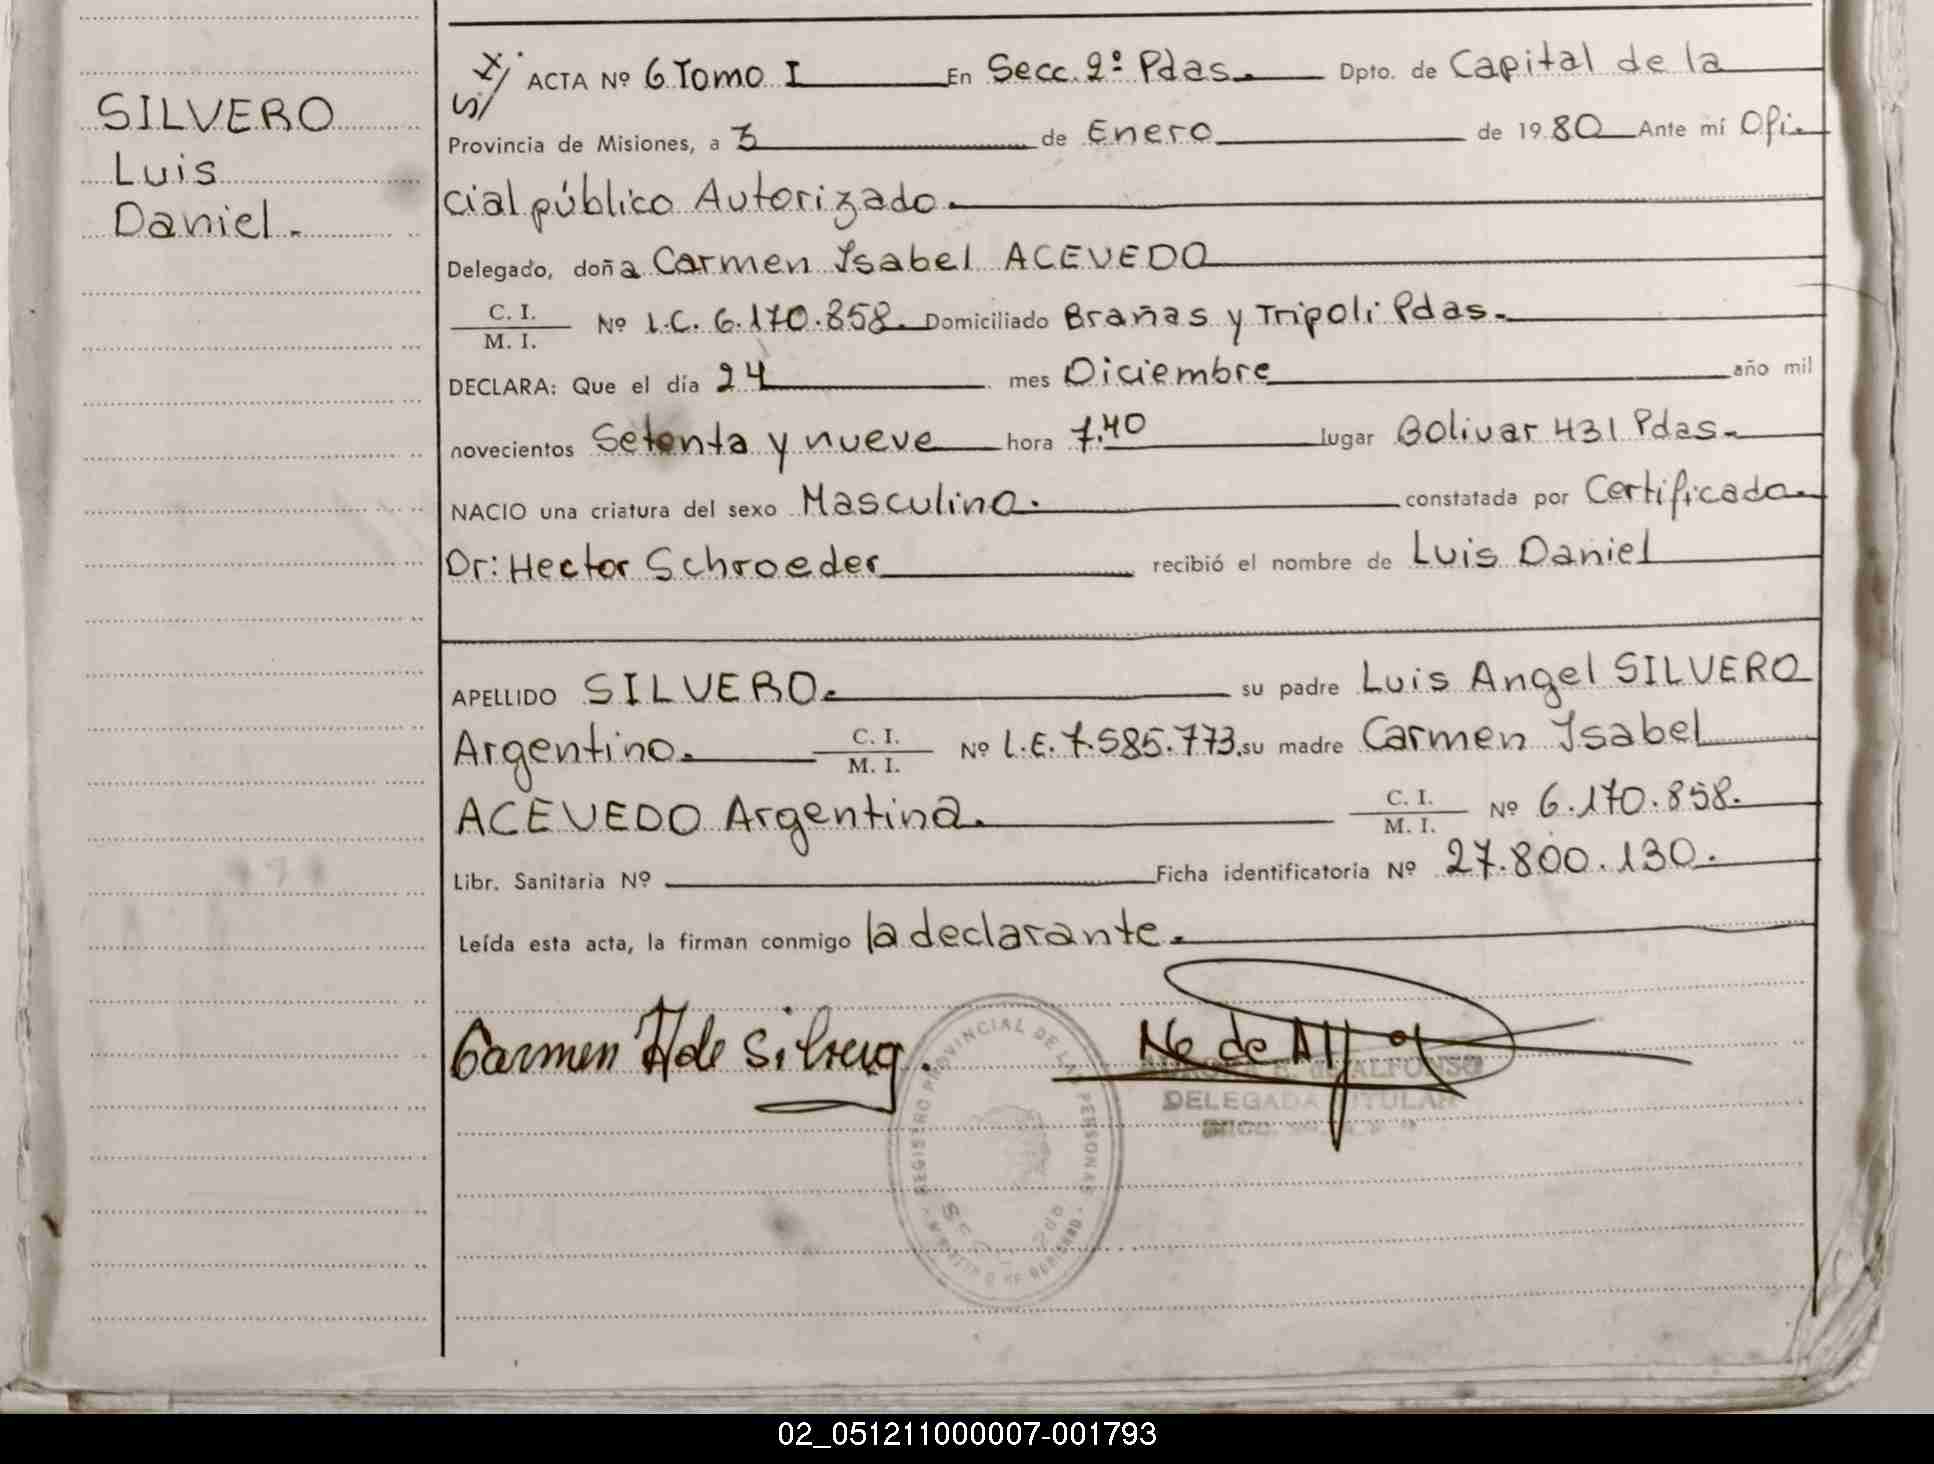 SILVERO
Luis
Daniel.
S/ ACTA Nº 6 Tomo I En Secc. 2º Pdas. Dpto. de Capital de la
Provincia de Misiones, a 3 de Enero de 1980 Ante mí Ofi
cial público Autorizado.
Delegado, doña Carmen Isabel ACEVEDO
C. I.
M. I. Nº L.C. 6.170.858. Domiciliado Brañas y Tripoli Pdas.
DECLARA: Que el día 24 mes Diciembre año mil
novecientos Setenta y nueve hora 7.40 lugar Bolivar 431 Pdas.
NACIO una criatura del sexo Masculino. constatada por Certificado
Dr: Hector Schroeder recibió el nombre de Luis Daniel
APELLIDO SILVERO. su padre Luis Angel SILVERO
Argentino. C. I.
M. I. Nº L.E. 7.585.773. su madre Carmen Isabel
ACEVEDO Argentina. C. I.
M. I. Nº 6.170.858.
Libr. Sanitaria Nº Ficha identificatoria Nº 27.800.130.
Leída esta acta, la firman conmigo la declarante.
Carmen de Silvero.
REGISTRO PROVINCIAL DE LAS PERSONAS
de ALFONSO
DELEGADA TITULAR
02_051211000007-001793